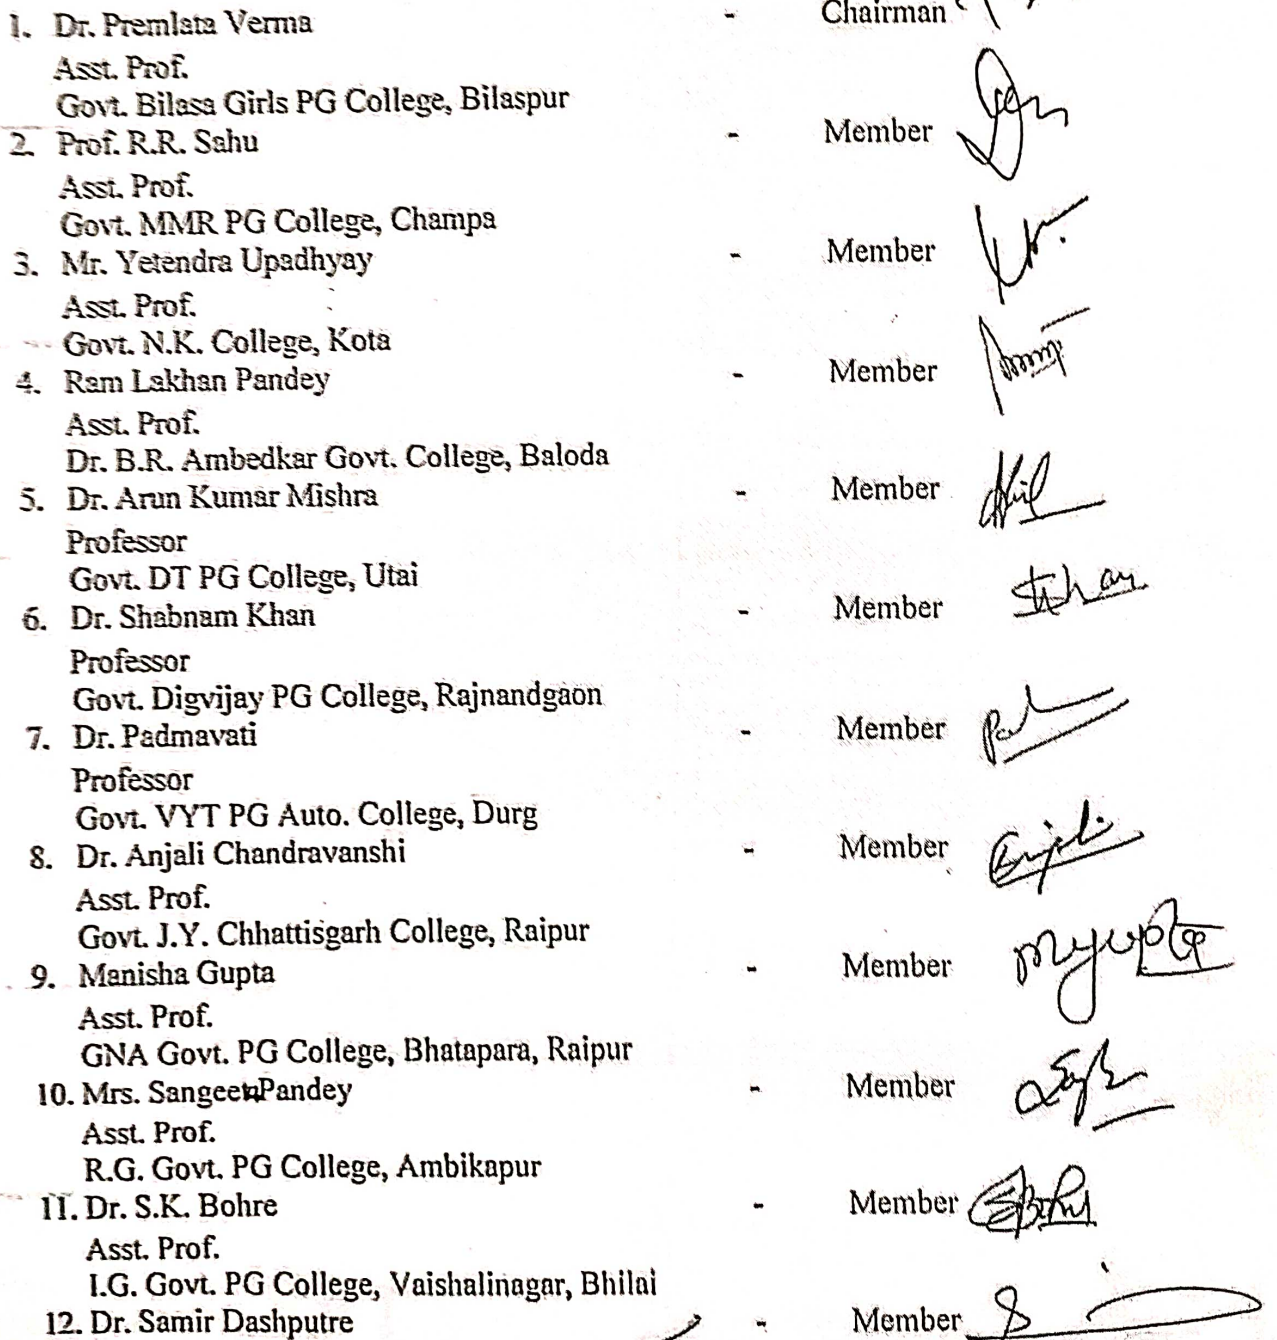 1. Dr. Premlata Verma - Chairman
Asst. Prof.
Govt. Bilasa Girls PG College, Bilaspur
2. Prof. R.R. Sahu - Member
Asst. Prof.
Govt. MMR PG College, Champa
3. Mr. Yetendra Upadhyay - Member
Asst. Prof.
Govt. N.K. College, Kota
4. Ram Lakhan Pandey - Member
Asst. Prof.
Dr. B.R. Ambedkar Govt. College, Baloda
5. Dr. Arun Kumar Mishra - Member
Professor
Govt. DT PG College, Utai
6. Dr. Shabnam Khan - Member
Professor
Govt. Digvijay PG College, Rajnandgaon
7. Dr. Padmavati - Member
Professor
Govt. VYT PG Auto. College, Durg
8. Dr. Anjali Chandravanshi - Member
Asst. Prof.
Govt. J.Y. Chhattisgarh College, Raipur
9. Manisha Gupta - Member
Asst. Prof.
GNA Govt. PG College, Bhatapara, Raipur
10. Mrs. Sangeeta Pandey - Member
Asst. Prof.
R.G. Govt. PG College, Ambikapur
11. Dr. S.K. Bohre - Member
Asst. Prof.
I.G. Govt. PG College, Vaishalinagar, Bhilai
12. Dr. Samir Dashputre - Member